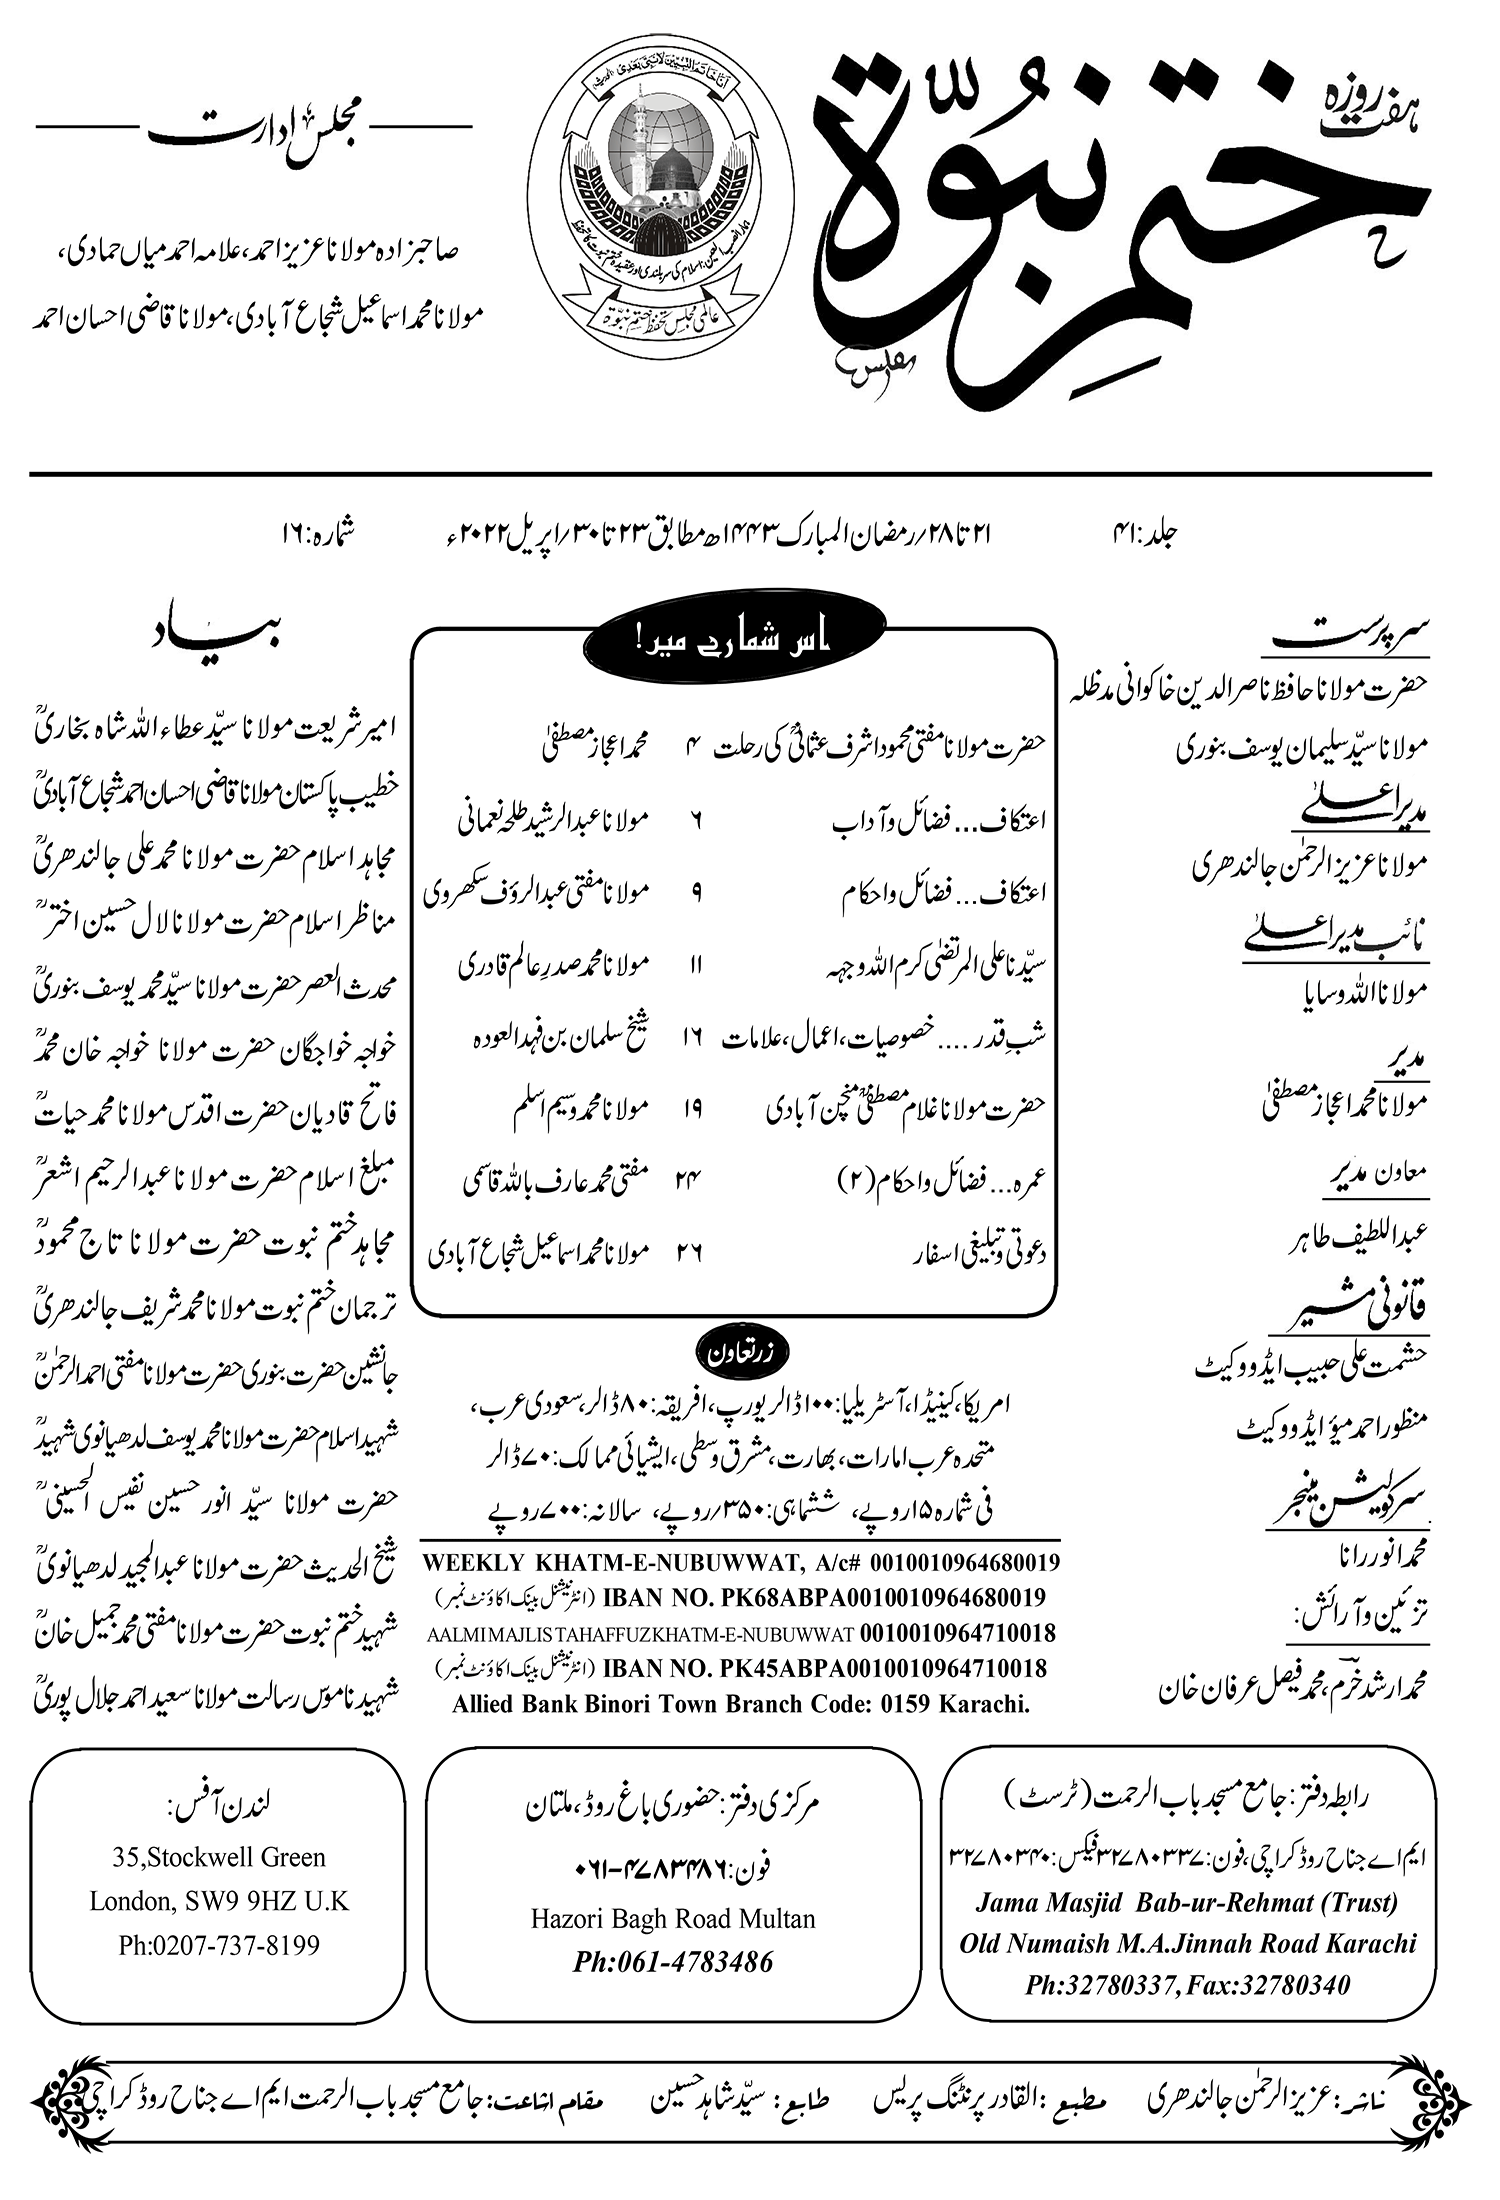 ہفت روزہ
ختم نبوّۃ
مجلس ادارت
صاحبزادہ مولانا عزیز احمد، علامہ احمد میاں حمادی،
مولانا محمد اسماعیل شجاع آبادی، مولانا قاضی احسان احمد
انا خاتم النبیین لا نبی بعدی
عالمی مجلس تحفظ ختم نبوّۃ
جلد: ۴۱
۲۱ تا ۲۸/ رمضان المبارک ۱۴۴۳ھ مطابق ۲۳ تا ۳۰/ اپریل ۲۰۲۲ء
شمارہ: ۱۶
سرپرست
حضرت مولانا حافظ ناصر الدین خاکوانی مدظلہ
مولانا سیّد سلیمان یوسف بنوری
مدیر اعلیٰ
مولانا عزیز الرحمٰن جالندھری
نائب مدیر اعلیٰ
مولانا اللہ وسایا
مدیر
مولانا محمد اعجاز مصطفیٰ
معاون مدیر
عبداللطیف طاہر
قانونی مشیر
حشمت علی حبیب ایڈووکیٹ
منظور احمد میؤ ایڈووکیٹ
سرکولیشن منیجر
محمد انور رانا
تزئین و آرائش:
محمد ارشد خرم، محمد فیصل عرفان خان
اس شمارے میں!
حضرت مولانا مفتی محمود اشرف عثمانیؒ کی رحلت ۴ محمد اعجاز مصطفیٰ
اعتکاف... فضائل و آداب ۶ مولانا عبدالرشید طلحہ نعمانی
اعتکاف... فضائل و احکام ۹ مولانا مفتی عبدالرؤف سکھروی
سیّدنا علی المرتضیٰ کرم اللہ وجہہ ۱۱ مولانا محمد صدرِ عالم قادری
شبِ قدر .... خصوصیات، اعمال، علامات ۱۶ شیخ سلمان بن فہد العودہ
حضرت مولانا غلام مصطفیٰؒ منچن آبادی ۱۹ مولانا محمد وسیم اسلم
عمرہ... فضائل و احکام (۲) ۲۴ مفتی محمد عارف باللہ قاسمی
دعوتی و تبلیغی اسفار ۲۶ مولانا محمد اسماعیل شجاع آبادی
زر تعاون
امریکا، کینیڈا، آسٹریلیا: ۱۰۰ ڈالر یورپ، افریقہ: ۸۰ ڈالر، سعودی عرب،
متحدہ عرب امارات، بھارت، مشرق وسطی، ایشیائی ممالک: ۷۰ ڈالر
فی شمارہ ۱۵ روپے، ششماہی: ۳۵۰/ روپے، سالانہ: ۷۰۰ روپے
WEEKLY KHATM-E-NUBUWWAT, A/c# 0010010964680019
IBAN NO. PK68ABPA0010010964680019 (انٹرنیشنل بینک اکاؤنٹ نمبر)
AALMIMAJLISTAHAFFUZKHATM-E-NUBUWWAT 0010010964710018
IBAN NO. PK45ABPA0010010964710018 (انٹرنیشنل بینک اکاؤنٹ نمبر)
Allied Bank Binori Town Branch Code: 0159 Karachi.
بیاد
امیر شریعت مولانا سیّد عطاء اللہ شاہ بخاریؒ
خطیب پاکستان مولانا قاضی احسان احمد شجاع آبادیؒ
مجاہد اسلام حضرت مولانا محمد علی جالندھریؒ
مناظر اسلام حضرت مولانا لال حسین اخترؒ
محدث العصر حضرت مولانا سیّد محمد یوسف بنوریؒ
خواجہ خواجگان حضرت مولانا خواجہ خان محمدؒ
فاتح قادیان حضرت اقدس مولانا محمد حیاتؒ
مبلغ اسلام حضرت مولانا عبدالرحیم اشعرؒ
مجاہد ختم نبوت حضرت مولانا تاج محمودؒ
ترجمان ختم نبوت مولانا محمد شریف جالندھریؒ
جانشین حضرت بنوری حضرت مولانا مفتی احمد الرحمٰنؒ
شہید اسلام حضرت مولانا محمد یوسف لدھیانوی شہیدؒ
حضرت مولانا سیّد انور حسین نفیس الحسینیؒ
شیخ الحدیث حضرت مولانا عبدالمجید لدھیانویؒ
شہید ختم نبوت حضرت مولانا مفتی محمد جمیل خانؒ
شہید ناموس رسالت مولانا سعید احمد جلال پوریؒ
رابطہ دفتر: جامع مسجد باب الرحمت (ٹرسٹ)
ایم اے جناح روڈ کراچی، فون: ۳۲۷۸۰۳۳۷ فیکس: ۳۲۷۸۰۳۴۰
Jama Masjid Bab-ur-Rehmat (Trust)
Old Numaish M.A.Jinnah Road Karachi
Ph:32780337, Fax:32780340
مرکزی دفتر: حضوری باغ روڈ، ملتان
فون: ۰۶۱-۴۷۸۳۴۸۶
Hazori Bagh Road Multan
Ph:061-4783486
لندن آفس:
35,Stockwell Green
London, SW9 9HZ U.K
Ph:0207-737-8199
ناشر: عزیز الرحمٰن جالندھری مطبع: القادر پرنٹنگ پریس طابع: سیّد شاہد حسین مقام اشاعت: جامع مسجد باب الرحمت ایم اے جناح روڈ کراچی